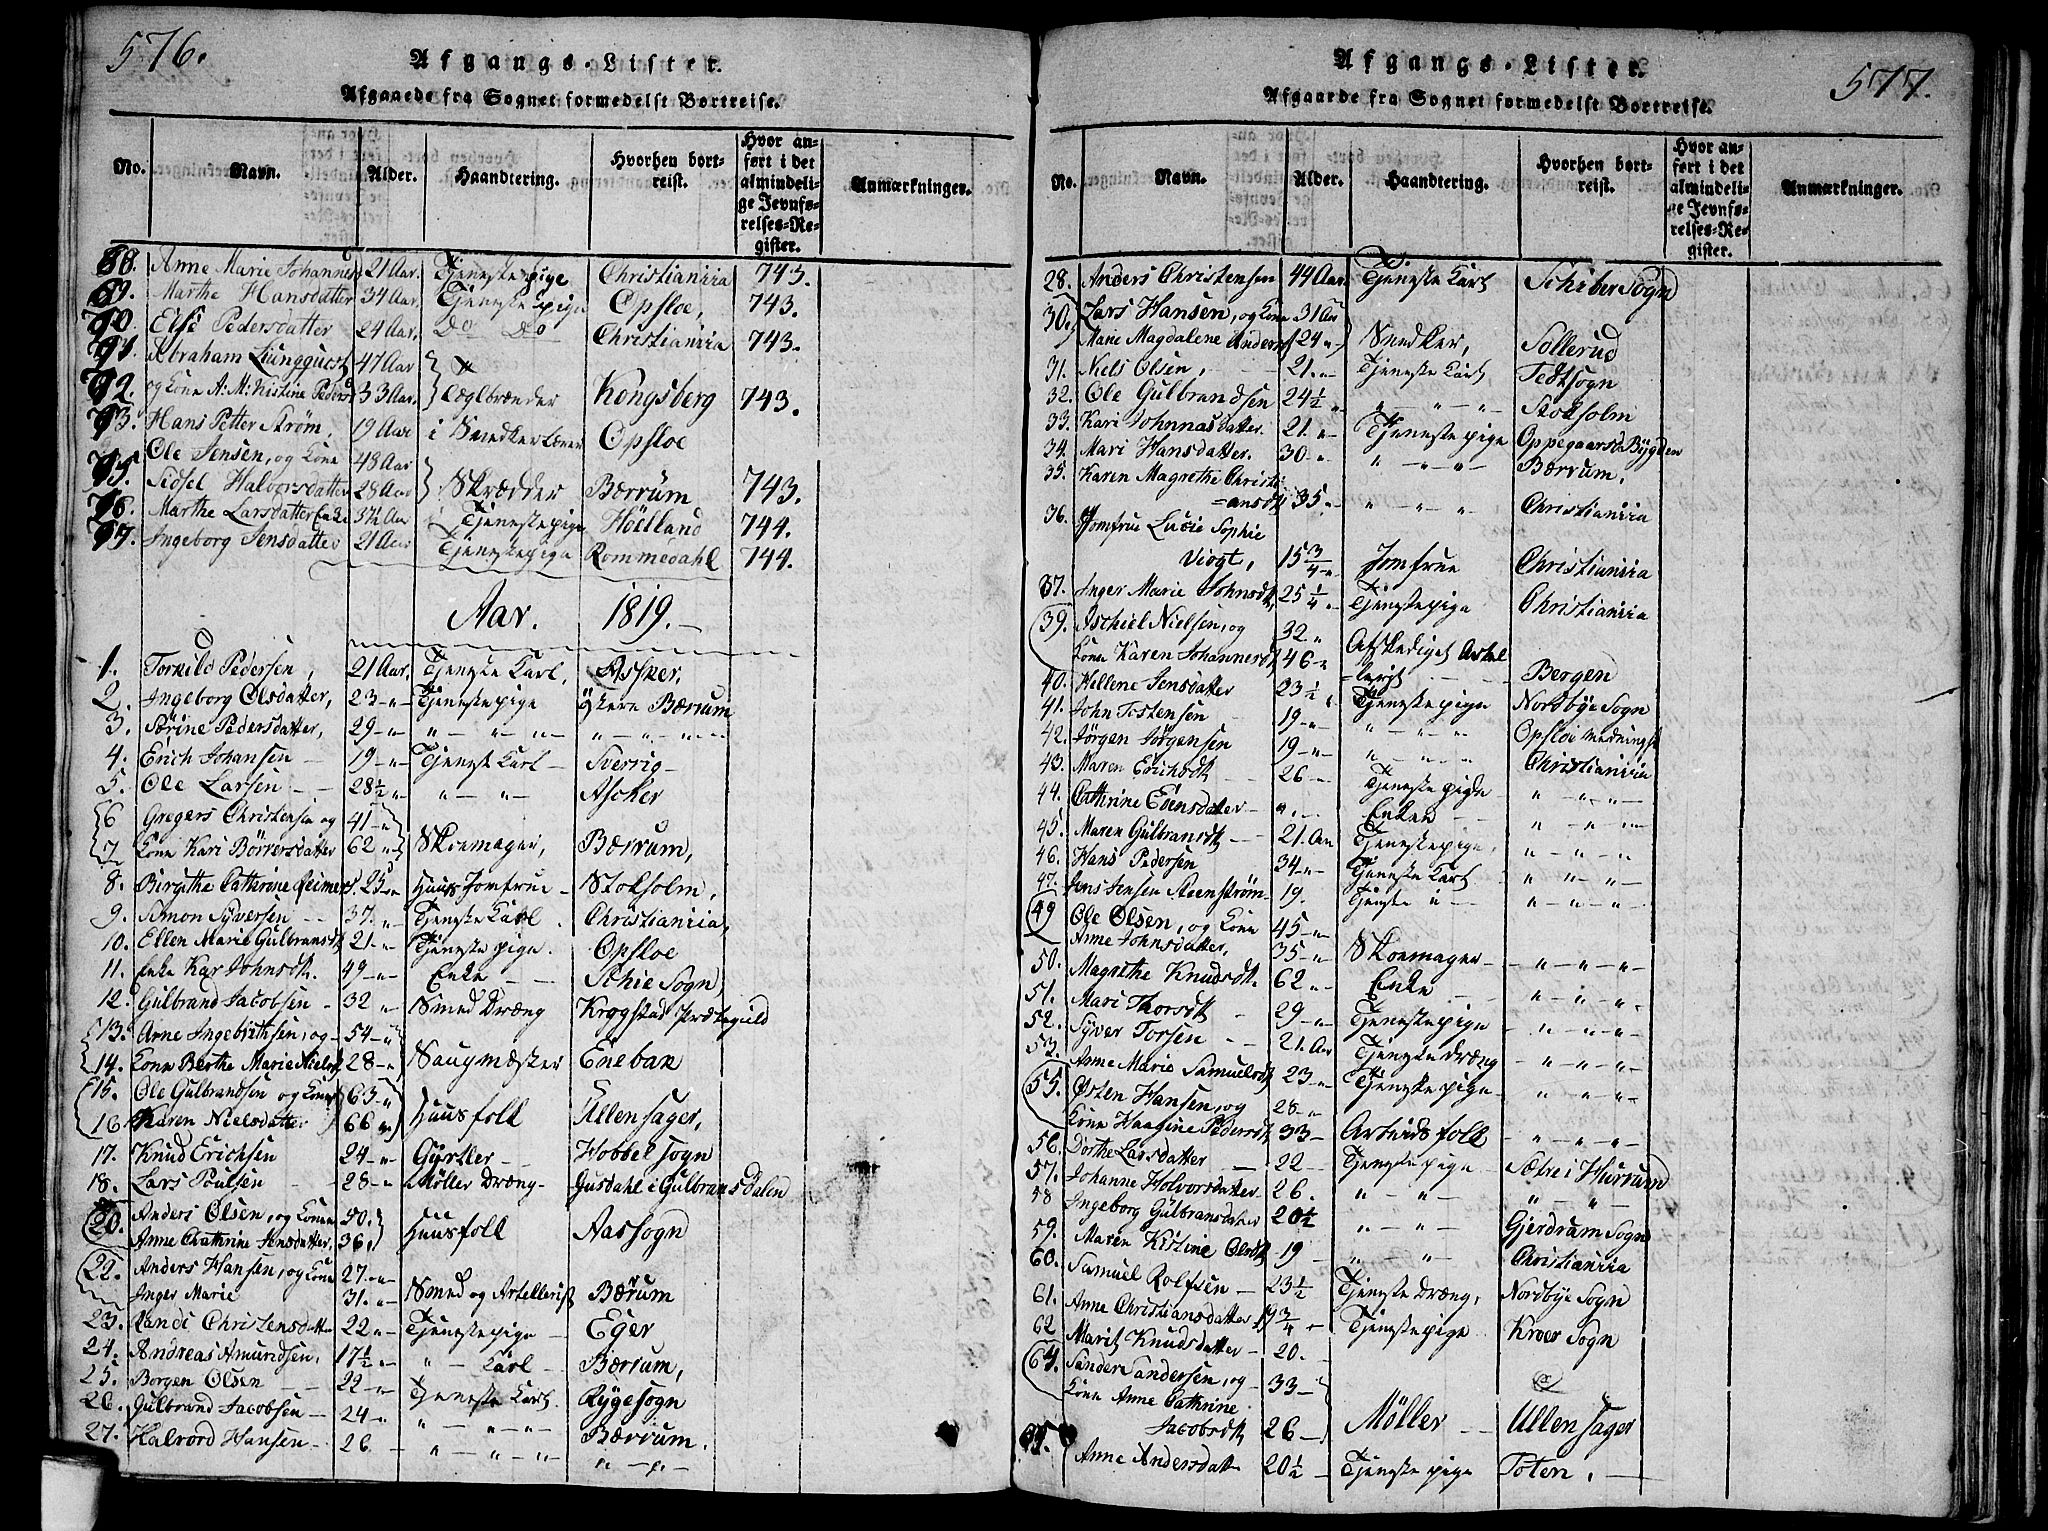 576.
Afgangs-Lister.
Afgaaede fra Sognet formedelst Bortreise.
No. Navn. Alder. Haandtering. Hvorhen bortreist. Hvor anført i det almindelige Jevnførelses-Register. Anmærkninger.
88. Anne Marie Johannesd 21 Aar. Tjenestepige Christiania 743.
89. Marthe Hansdatter 34 Aar. Tjenestepige Opsloe, 743.
90. Else Pedersdatter 24 Aar. Do Do Christiania 743.
91. Abraham Liungquest 47 Aar
92. og Kone A: M: Kistine Pedersd 33 Aar. Tæglbrænder Kongsberg 743.
93. Hans Petter Strøm. 19 Aar i Snedkerlære Opsloe
Ole Jensen, og Kone 48 Aar
95. Sidsel Halvorsdatter 28 Aar Skrædder Bærrum 743.
96. Marthe Larsdatter Enke 37½ Aar Tjenestepige Höelland 744.
97. Ingeborg Jensdatter 21 Aar Tjenestepige Rommedahl 744.
Aar. 1819.
1. Torkild Pedersen, 21 Aar. Tjeneste Karl. Asker.
2. Ingeborg Olsdatter, 23 - " - Tjenestepige Bærrum
3. Sörine Pedersdatter, 29 - " " - " - " " - " - "
4. Erich Johansen 19 - " - Tjenest Karl - Sverrig -
5. Ole Larsen - - 28½ - " " - " - " Ascker
6 Gregers Christensen og 41 - "
7. Kone Kari Börresdatter 62 " Skoemager, Bærrum,
8. Birgithe Cathrine Reimers. 25 - " Huus Jomfrue - Stokholm,
9. Simon Syversen - - 37. " Tjeneste Karl. Christiania,
10. Ellen Marie Gulbransdt 21 - " Tjenestepige. Opsloe
11. Enke Kari Johnsdt. 49 - " - Enke - - Schie Sogn,
12. Gulbrand Jacobsen - 32 " Smed Dræng Krogstad Præteguld
13. Arne Ingebrethsen, og - 54 - "
14. Kone Berthe Marie Nielsd 28 - " Saugmæster Enebak
15. Ole Gulbrandsen og Kone 63 - "
16 Karen Nielsdatter 66 " Huusfolk Ullensager,
17. Knud Erichsen 24 - " Gjörtler - - Hobbel Sogn
18. Lars Poulsen 28 - " Møller Dræng - Gusdahl i Gulbransdalen
Anders Olsen, og Konen 50.
20. Anne Cathrine Jensdatter, 36. Huusfolk Aassogn
22. Anders Hansen, og Kone 27. - "
Inger Marie 31. " Smed og Artellerist Bærum
23. Randi Christensdatter 22 " - Tjenestepige - Eger
24. Andreas Amundsen. 17½ - " - " - Karl - Bærrum,
25. Borgen Olsen - - 22 - " Tjeneste Karl. Rygesogn
26. Gulbrand Jacobsen - 24 - " " - " - " - Bærrum.
27. Halvord Hansen - 26 - " - " - " " - " -

577.
Afgangs-Lister.
Afgaaede fra Sognet formedelst Bortreise.
No. Navn. Alder. Haandtering. Hvorhen bortreist. Hvor anført i det almindelige Jevnførelses-Register. Anmærkninger.
28. Anders Christensen 44 Aar. Tjeneste Karl Schiber Sogn
Lars Hansen, og Kone 31 Aar
30. Marie Magdalene Andersd 24 " Snedker, Sollerud
31. Niels Olsen, - 21. " Tjeneste Karl Tedtsogn
32. Ole Gulbrandsen 24½ " " " - " Stokholm
33. Kari Johnnasdatter. 21. " Tjenestepige Oppegaards Bygden
34. Mari Hansdatter. 30 - " " - " - " Bærrum,
35. Karen Magrethe Christi
=ansdt 35 - " " - " " Christiania
36. Jomfrue Lucie Sophie
Viogt, 15¾ - " Jomfrue Christiania
37. Inger Marie Johnsdt, 25¼ " Tjenestepige Christiania
39. Eschiel Nielsen, og 32 " Afskediget Artel
Kone Karen Johannesdt 46 - " =lerist - - Bergen
40. Hellene Jensdatter 23½ " Tjenestepige Nordbye Sogn
41. John Tostensen - 19 - " " - " - " Opsloe
42. Jörgen Jørgensen 19 - " " - " - " Christiania
43. Maren Erichsdt - 26 - Tjenestepige - " - " " -
44. Cathrine Evensdatter - " . - Enken - - " - " "
45. Maren Gulbransdt - - 21. Aar Tjenestepige, " - " - " -
46. Hans Pedersen 34 - " Tjeneste Karl " " - " -
47. Jens Jensen Steenstrøm - 19. Tjeneste " - " - " - " -
49 Ole Olsen, og Kone 45 - "
Anne Johnsdatter, 35 - " Skoemager - - " - " - " -
50. Magrethe Knudsdt. 62 " - Enke - " - " - " -
51. Mari Thorsdt - 29 - " Tjenestepige " - " - " -
52. Syver Torsen - - 21. Aar Tjeneste Dræng - " - " - " -
53. Anne Marie Samuelsdt 23 - " Tjenestepige - " - " - " -
55. Østen Hansen, og 28 - "
Kone Haagine Pedersdt 33 - Arbeids folk - " - " - " -
56. Dorthe Larsdatter - 22 - Tjenestepige - Sætre i Hurrum
57. Johanne Holvorsdatter - 26. " - " - " - "
58 Ingeborg Gulbransdater 20½ " - " - Gjerdrum Sogn
59. Maren Kistine Olsdt 19 - " " - Christiania
60. Samuel Rolfsen - 23½ - Tjeneste Dræng, Nordbye Sogn
61. Anne Christiansdatter 19¾ - Tjenestepige Kroer Sogn
62 Marit Knudsdatter - 20. -
64. Sander Sandersen, og - 33 -
Kone Anne Cathrine
Jacobsdt 26 - Møller - - Ullensager
65. Anne Andersdatt 20½ - Tjenestepige Toten. -